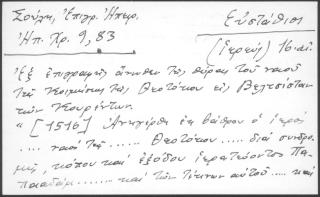 Σούλη, Ἐπιγρ. Ἠπειρ.
Εὐστάθιος
Ἠπ. Χρ. 9, 83
(Ἱερεύς) 16 αἰ.
Ἐξ ἐπιγραφῆς ἄνωθεν τῆς θύρας τοῦ ναοῦ
τῆς Κοιμήσεως τῆς Θεοτόκου εἰς Βελτσίσταν
τῶν Κουρέντων.
" [1516] Ἀνηγέρθη ἐκ βάθρου ὁ ἱερὸς
.... ναὸς τῆς ...... Θεοτόκου ..... διὰ συνδρο-
μῆς, κόπου καὶ ἐξόδου ἱερατεύοντος Πα-
πααδὰμ ........ καὶ τῶν τέκνων αὐτοῦ .... καὶ